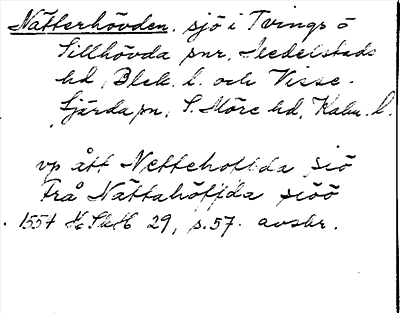 Nätterhövden. sjö i Tvings o
Sillhövda snr, Medelstads
hd, Blek. l. och Visse-
fjärda sn, S. Möre hd, Kalm. l.
vp ått Nettehoffda siö
Från Nättahöffda siöö
1554 HSkH 29, s. 57. avskr.